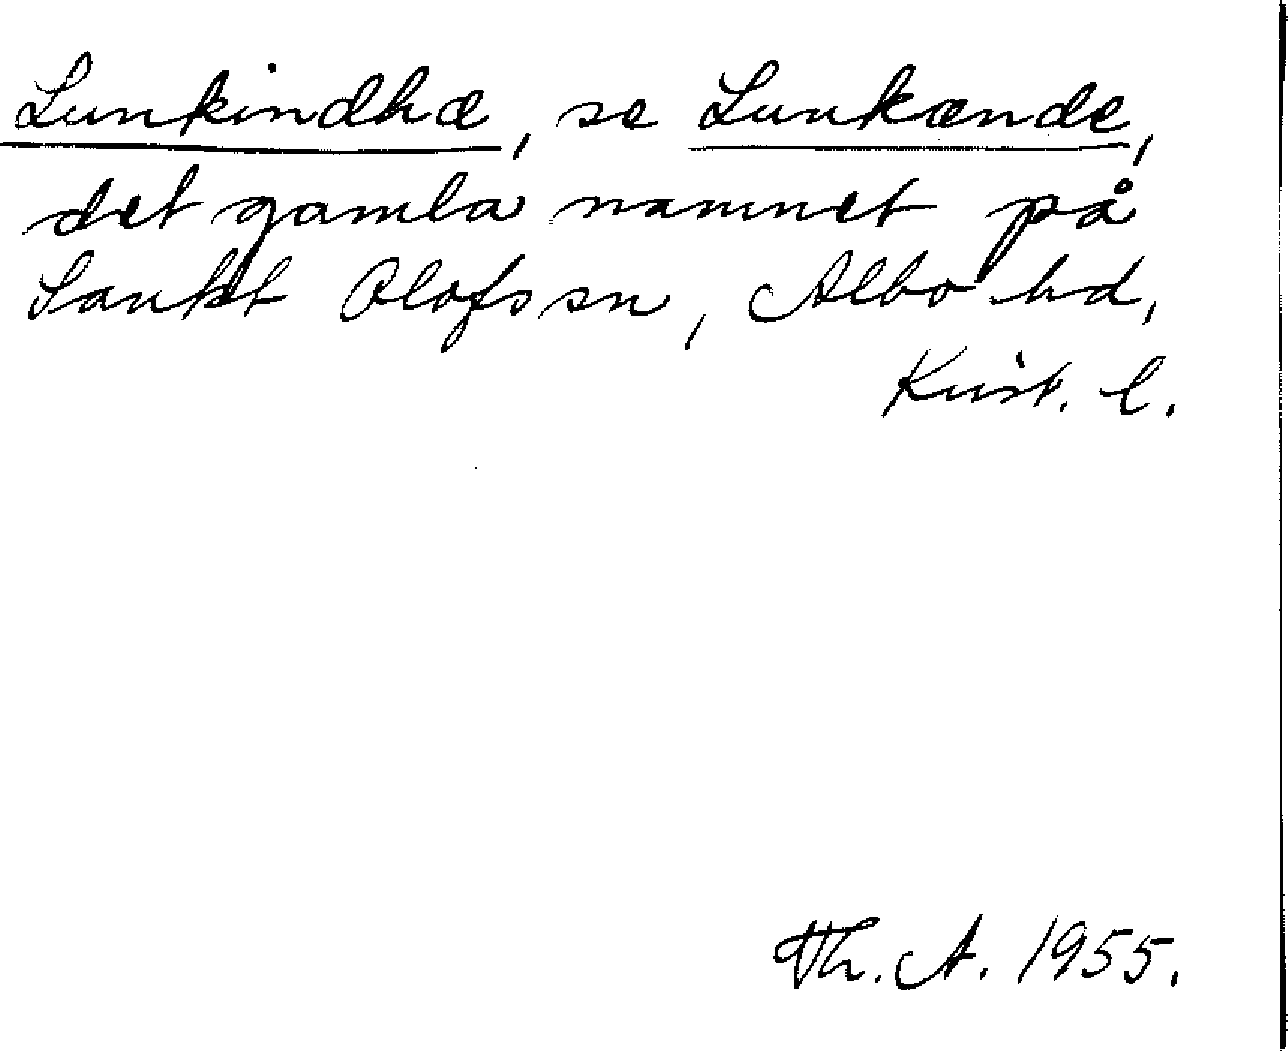 Lunkindhæ, se Lunkænde,
det gamla namnet på
Sankt Olofs sn, Albo hd,
Krist. l.
Th. A. 1955.